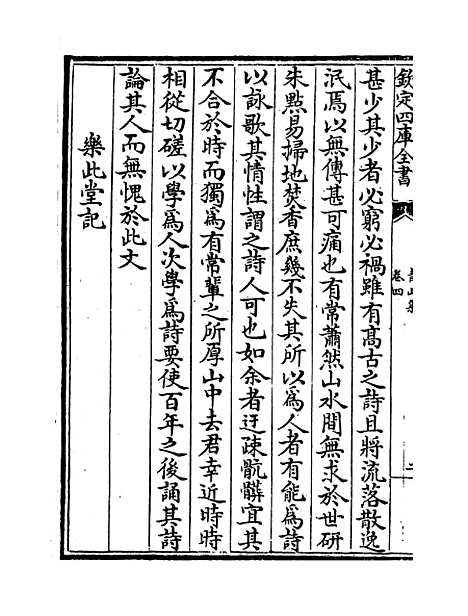 欽定四庫全書
卷四
甚少其少者必窮必禍雖有髙古之詩且將流落散逸
泯焉以無傳甚可痛也有常蕭然山水間無求於世研
朱點易掃地焚香庶幾不失其所以為人者有能為詩
以詠歌其情性謂之詩人可也如余者迂疎骯髒宜其
不合於時而獨為有常輩之所厚山中去君幸近時時
相從切磋以學為人次學為詩要使百年之後誦其詩
論其人而無愧於此文
樂此堂記